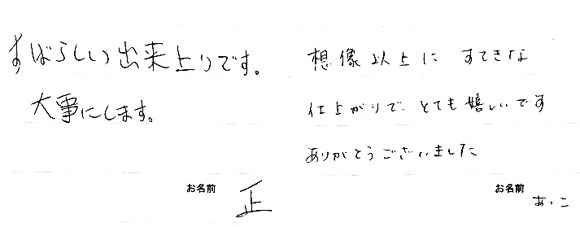 すばらしい出来上りです。
大事にします。
お名前 正
想像以上に すてきな
仕上がりで とても嬉しいです
ありがとうございました
お名前 あっこ